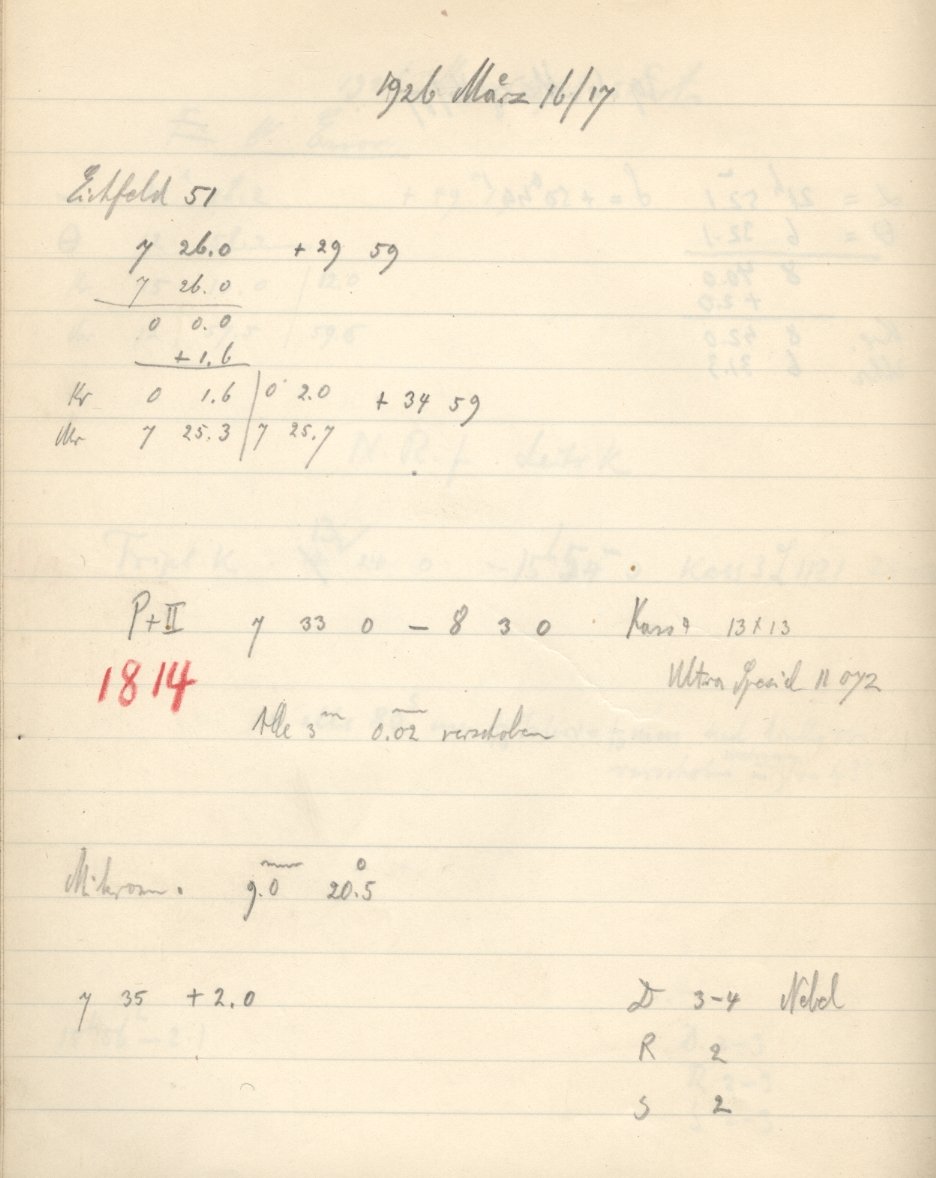 1926 März 16/17
Eichfeld 51
7 26.0 + 29 59
7 26.0
0 0.0
+ 1.6
Kr 0 1.6 | 0 2.0 + 34 59
Mr 7 25.3 | 7 25.7
P+II 7 33 0 – 8 3 0 Kass 13x13
1814 Ultra Spezial
Alle 3 m 0.02 mm verschoben
Mikrom. 9.0 mm 20.5 °
7 35 + 2.0 D 3–4 Nebel
R 2
S 2